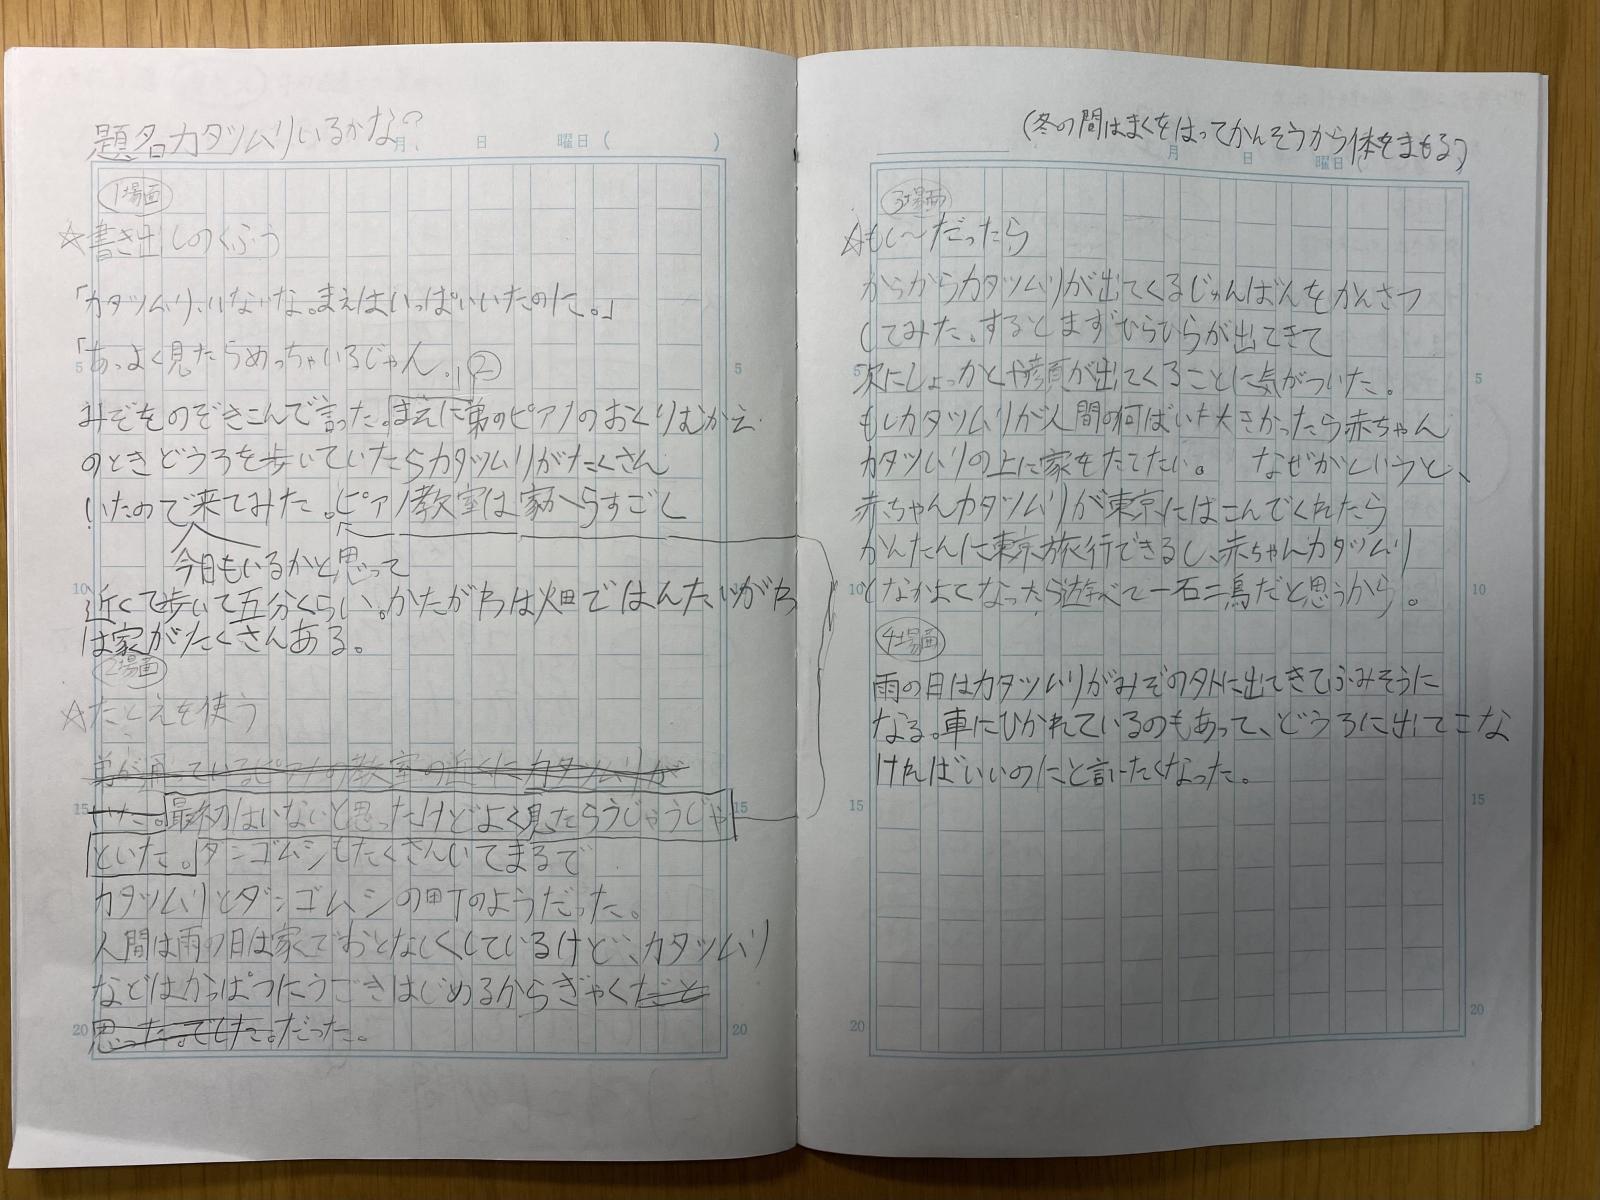 題名カタツムリいるかな?
月 日 曜日( )
1場面
☆書き出しのくふう
「カタツムリ、いないな。まえはいっぱいいたのに。」
「あっよく見たらめっちゃいるじゃん。」②
みぞをのぞきこんで言った。まえに弟のピアノのおくりむかえ
のときどうろを歩いていたらカタツムリがたくさん
いたので来てみた。ピアノ教室は家からすごく
今日もいるかと思って
近くて歩いて五分くらい。かたがわは畑ではんたいがわ
は家がたくさんある。
2場面
☆たとえを使う
弟が通っているピアノの教室の近くにカタツムリが
いた。最初はいないと思ったけどよく見たらうじゃうじゃ
といた。ダンゴムシもたくさんいてまるで
カタツムリとダンゴムシの町のようだった。
人間は雨の日は家でおとなしくしているけど、カタツムリ
などはかっぱつにうごきはじめるからぎゃくだと
思った。でした。だった。
5
10
15
20
5
15
20
(冬の間はまくをはってかんそうから体をまもる)
月 日 曜日
3場面
☆もし〜だったら
からからカタツムリが出てくるじゅんばんをかんさつ
してみた。するとまずひらひらが出てきて
次にしょっかくや顔が出てくることに気がついた。
もしカタツムリが人間の何ばいも大きかったら赤ちゃん
カタツムリの上に家をたてたい。 なぜかというと、
赤ちゃんカタツムリが東京にはこんでくれたら
かんたんに東京旅行できるし、赤ちゃんカタツムリ
となかよくなったら遊べて一石二鳥だと思うから。
4場面
雨の日はカタツムリがみぞの外に出てきてふみそうに
なる。車にひかれているのもあって、どうろに出てこな
ければいいのにと言いたくなった。
5
10
15
20
5
10
15
20